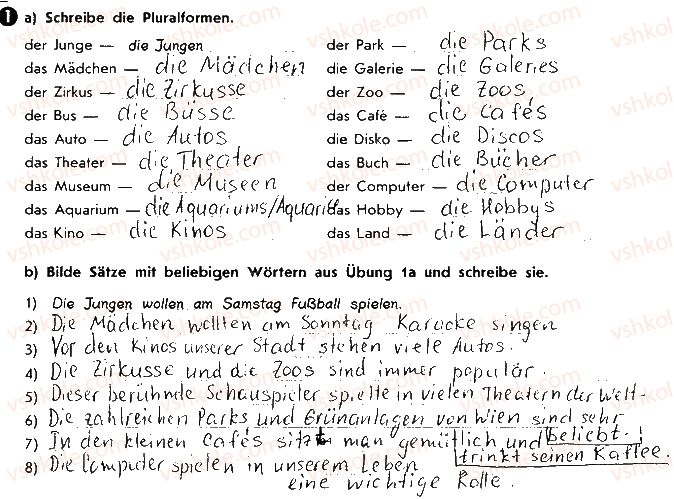 1 a) Schreibe die Pluralformen.
der Junge — die Jungen
das Mädchen — die Mädchen
der Zirkus — die Zirkusse
der Bus — die Busse
das Auto — die Autos
das Theater — die Theater
das Museum — die Museen
das Aquarium — die Aquariums/Aquarien
das Kino — die Kinos
der Park — die Parks
die Galerie — die Galeries
der Zoo — die Zoos
das Café — die Cafés
die Disko — die Discos
das Buch — die Bücher
der Computer — die Computer
das Hobby — die Hobbys
das Land — die Länder
b) Bilde Sätze mit beliebigen Wörtern aus Übung 1a und schreibe sie.
1) Die Jungen wollen am Samstag Fußball spielen.
2) Die Mädchen wollten am Sonntag Karaoke singen
3) Vor den Kinos unserer Stadt stehen viele Autos.
4) Die Zirkusse und die Zoos sind immer populär.
5) Dieser berühmde Schauspieler spielte in vielen Theatern der Welt.
6) Die zahlreichen Parks und Grünanlagen von Wien sind sehr beliebt.
7) In den kleinen Cafés sitzt man gemütlich und trinkt seinen Kaffee.
8) Die Computer spielen in unserem Leben
eine wichtige Rolle.